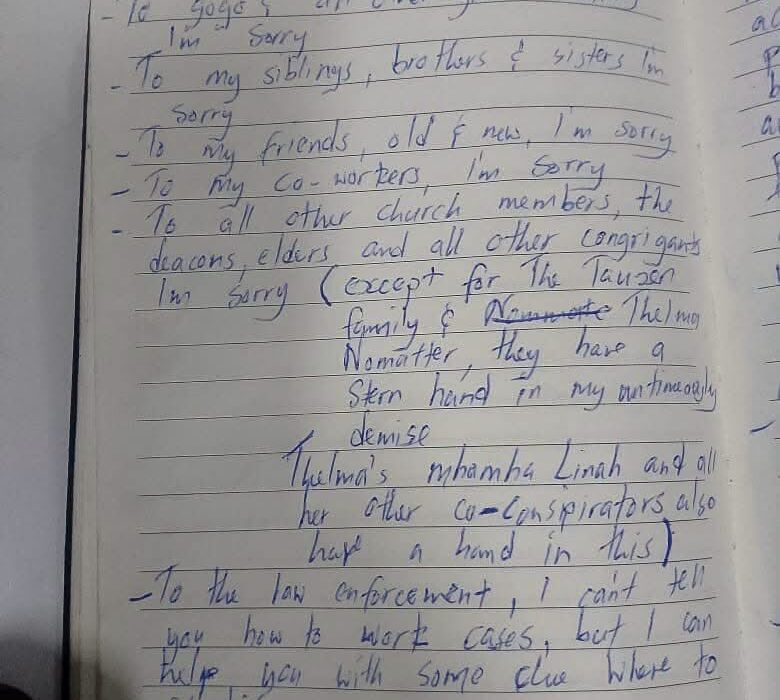 - To gogo &
I'm sorry
- To my siblings, brothers & sisters I'm
sorry
- To my friends, old & new, I'm sorry
- To my co-workers, I'm sorry
- To all other church members, the
deacons, elders and all other congrigants
I'm sorry (except for The Tauzen
family & Thelma
Nomatter, they have a
stern hand in my
demise
Thelma's mhamha Linah and all
her other co-conspirators also
have a hand in this)
- To the law enforcement, I can't tell
you how to work cases, but I can
help you with some clue where to